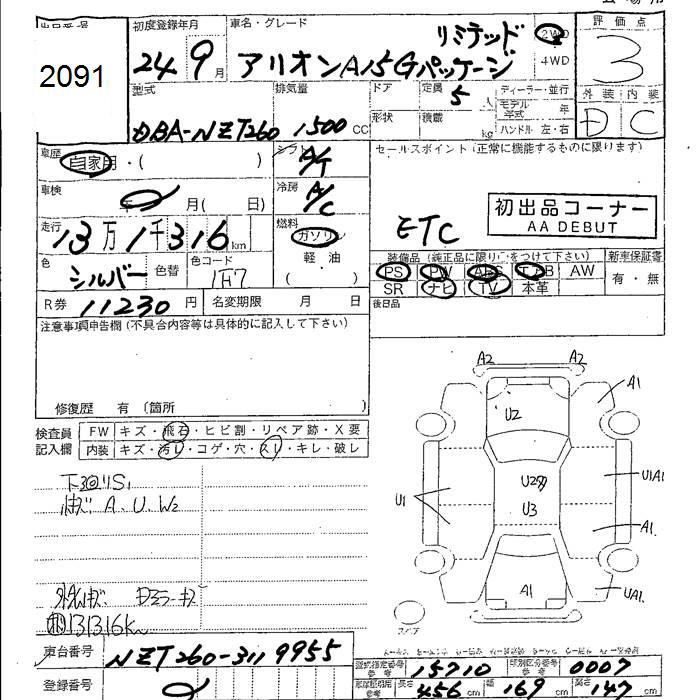 2091
初度登録年月
車名・グレード
評価点
24 9月
アリオンA15Gパッケージ
リミテッド
2WD
4WD
3
型式
排気量
ドア
定員
ディーラー・並行
外装 内装
DBA-NZT260
1500 CC
形状
5人
積載 kg
モデル年式 年
ハンドル 左・右
D C
車歴
自家用・( )
シフト
A/T
セールスポイント(正常に機能するものに限ります)
車検
年 月( 日)
冷房
A/C
初出品コーナー
AA DEBUT
走行
13万1千316km
燃料
ガソリン
軽油
( )
ETC
装備品
新車保証書
色
シルバー
色替
色コード
1F7
PS PW ABS エアB AW
SR ナビ TV 本革
有・無
R券 11230円
名変期限 月 日
後日品
注意事項申告欄(不具合内容等は具体的に記入して下さい)
修復歴 有(箇所 )
検査員
記入欄
FW キズ・飛石・ヒビ割・リペア跡・X要
内装 キズ・汚レ・コゲ・穴・スレ・キレ・破レ
A2 A2
A1
U2
U1
U2
U3
U1A1
A1
A1
UA1
A.U.W2
131316K
車台番号 NZT260-3119955
登録番号
型式指定番号 15710
類別区分番号 0007
長さ 456 cm
幅 169 cm
高さ 147 cm